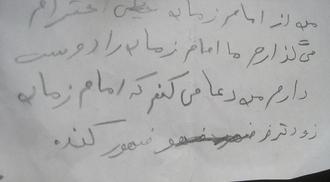 من از امام زمان خیلی احترام
می‌گذارم ما امام زمان را دوست
دارم من دعا می کنم که امام زمان
زودتر ظهور کند